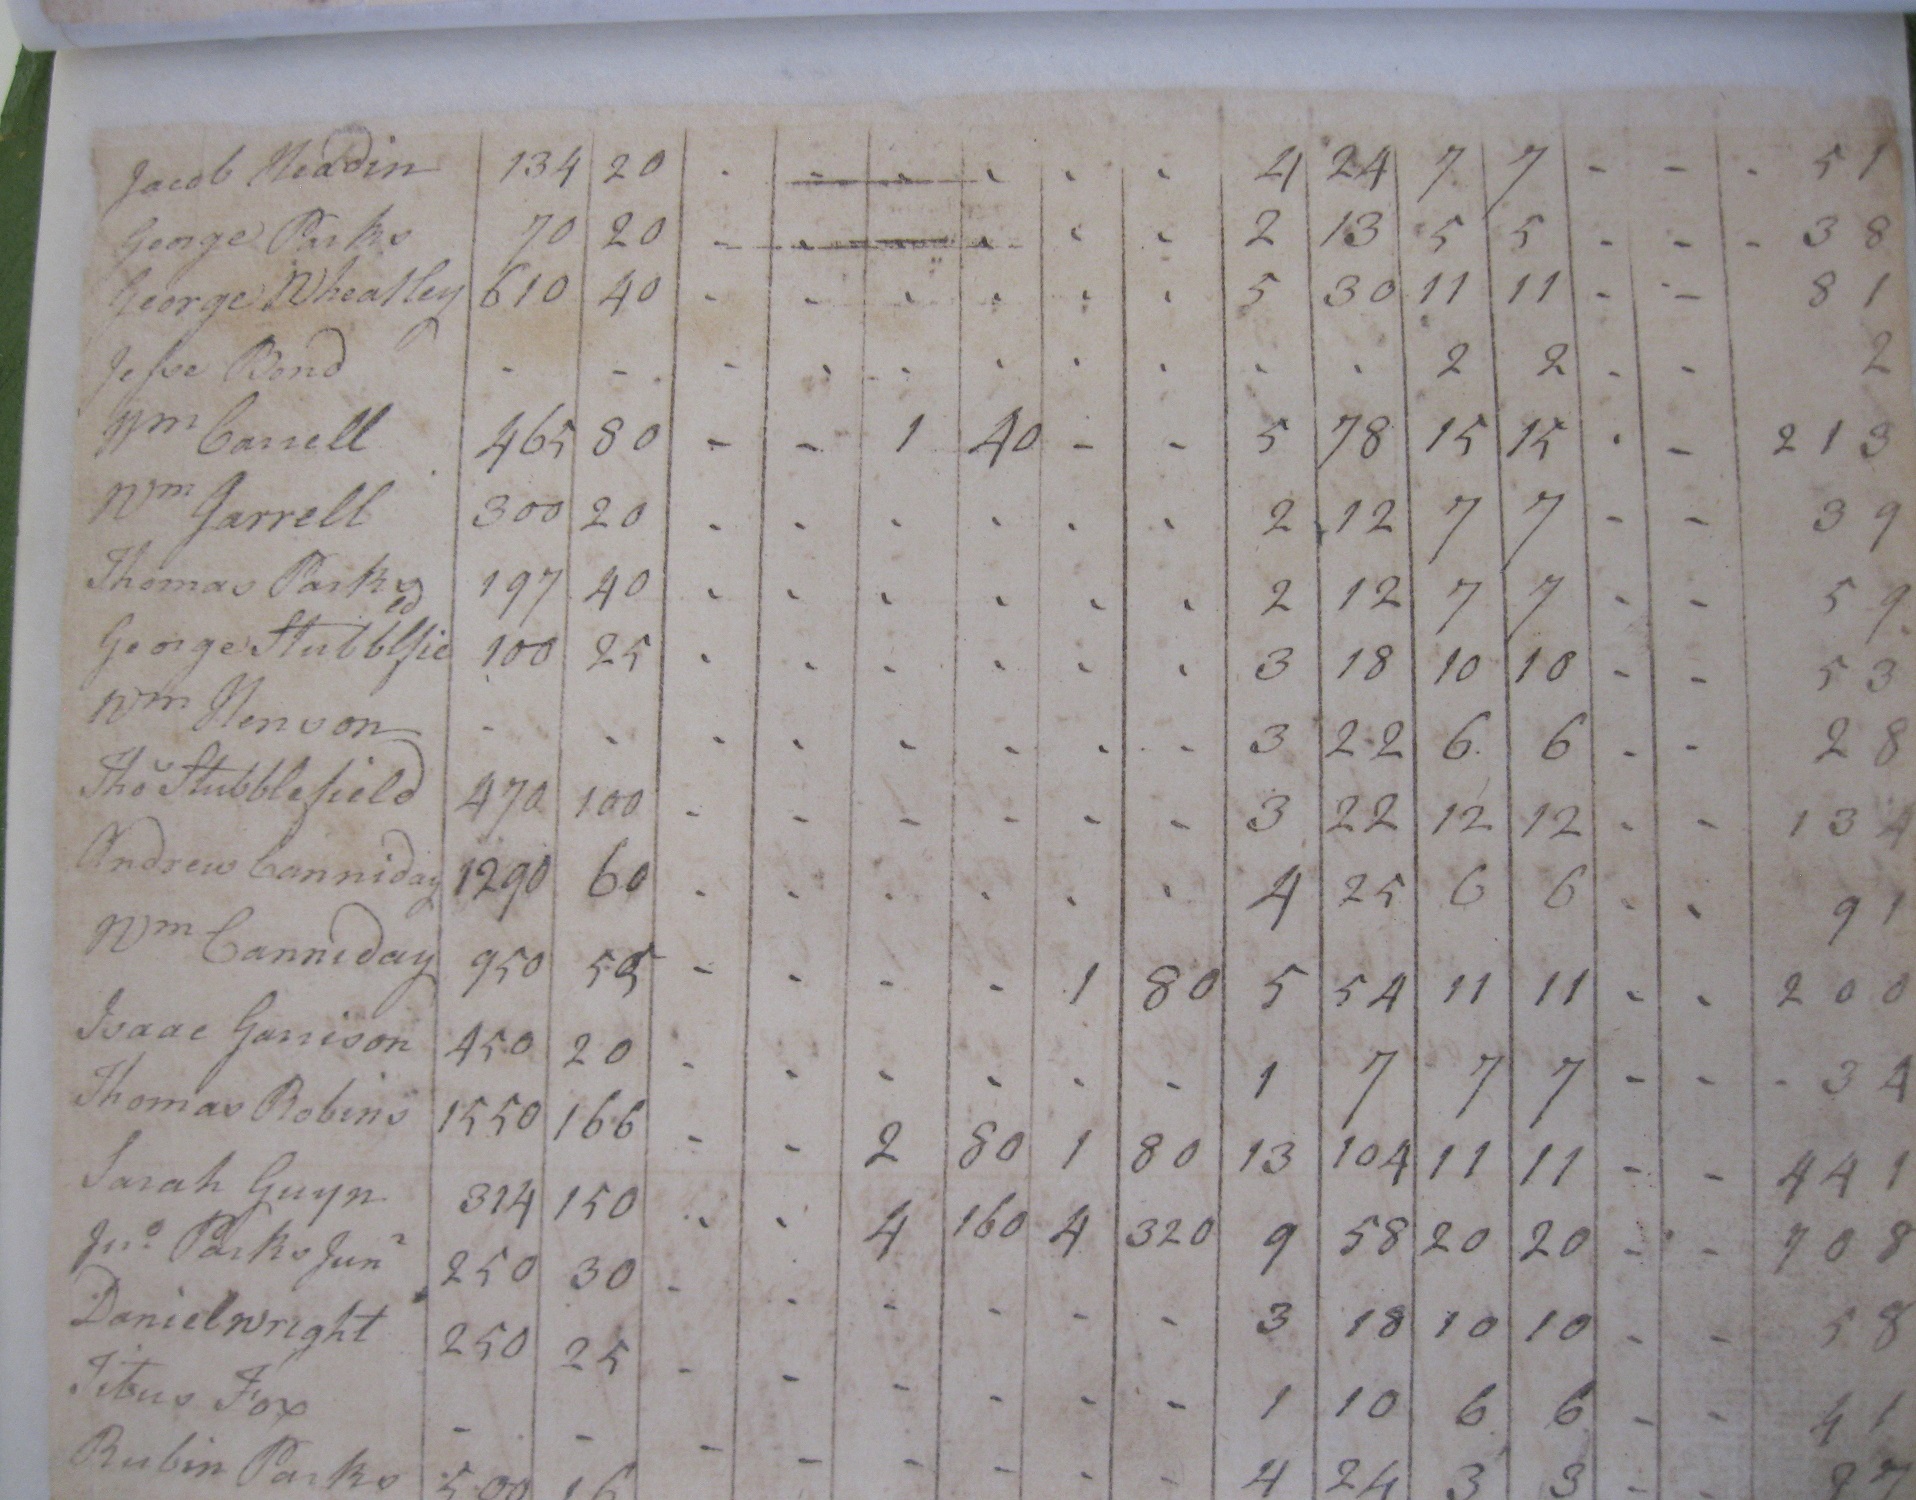 Jacob Headin 134 20 - - - - - - 4 24 7 7 - - - 51
George Parks 70 20 - - - - - - 2 13 5 5 - - - 38
George Wheatley 610 40 - - - - - - 5 30 11 11 - - 81
Jesse Bond - - - - - - - - - - 2 2 - - 2
Wm Carrell 465 80 - - 1 40 - - 5 78 15 15 - - 213
Wm Jarrell 300 20 - - - - - - 2 12 7 7 - - 39
Thomas Parks 197 40 - - - - - - 2 12 7 7 - - 59
George Stubblfield 100 25 - - - - - - 3 18 10 10 - - 53
Wm Henson - - - - - - - - 3 22 6 6 - - 28
Thos Stubblefield 470 100 - - - - - - 3 22 12 12 - - 134
Andrew Canniday 1290 60 - - - - - - 4 25 6 6 - - 91
Wm Canniday 950 55 - - - - 1 80 5 54 11 11 - - 200
Isaac Garrison 450 20 - - - - - - 1 7 7 7 - - - 34
Thomas Robins 1550 166 - - 2 80 1 80 13 104 11 11 - - 441
Sarah Guyn 314 150 - - 4 160 4 320 9 58 20 20 - - 708
Jno Parks Junr 250 30 - - - - - - 3 18 10 10 - - 58
Daniel wright 250 25 - - - - - - 1 10 6 6 - - 41
Titus Fox - - - - - - - - 4 24 3 3 - - 27
Rubin Parks 500 16